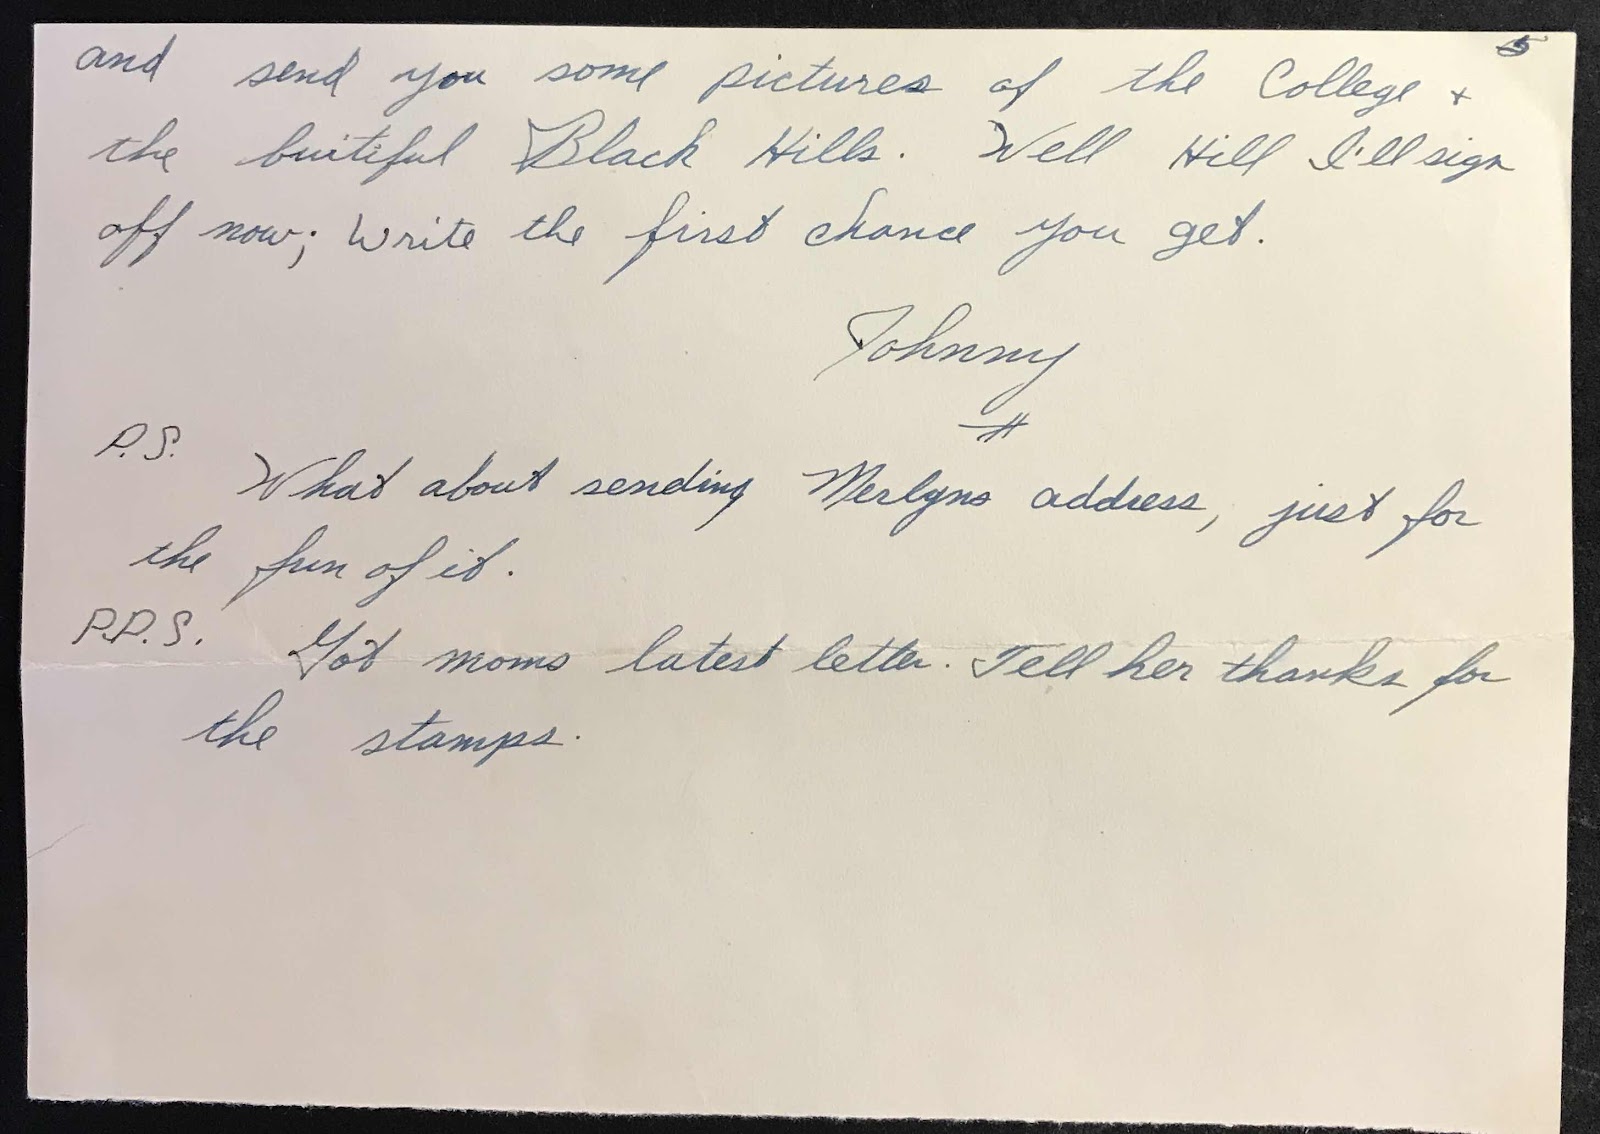 5
and send you some pictures of the College +
the buitiful Black Hills. Well Hill I'll sign
off now; Write the first chance you get.
Johnny
P.S.
What about sending Merlyns address, just for
the fun of it.
P.P.S. Got moms latest letter. Tell her thanks for
the stamps.